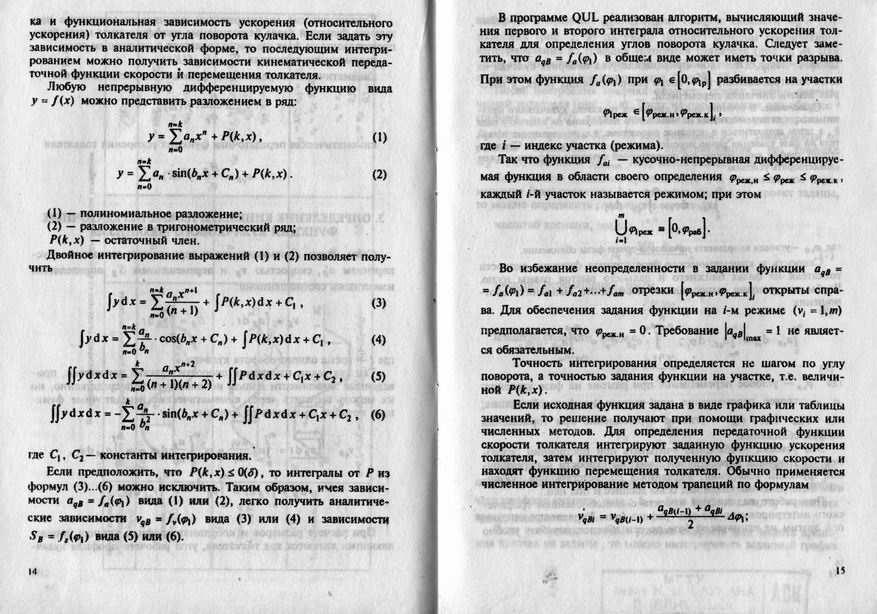 ка и функциональная зависимость ускорения (относительного
ускорения) толкателя от угла поворота кулачка. Если задать эту
зависимость в аналитической форме, то последующим интегри-
рованием можно получить зависимости кинематической переда-
точной функции скорости и перемещения толкателя.
Любую непрерывную дифференцируемую функцию вида
y = f(x) можно представить разложением в ряд:
y = ∑_{n=0}^{n=k} a_n x^n + P(k,x), (1)
y = ∑_{n=0}^{n=k} a_n · sin(b_n x + C_n) + P(k,x). (2)
(1) — полиномиальное разложение;
(2) — разложение в тригонометрический ряд;
P(k,x) — остаточный член.
Двойное интегрирование выражений (1) и (2) позволяет полу-
чить
∫y dx = ∑_{n=0}^{n=k} a_n x^{n+1}/(n + 1) + ∫P(k,x)dx + C_1, (3)
∫y dx = ∑_{n=0}^{n=k} a_n/b_n · cos(b_n x + C_n) + ∫P(k,x)dx + C_1, (4)
∫∫y dx dx = ∑_{n=0}^{k} a_n x^{n+2}/((n + 1)(n + 2)) + ∫∫P dx dx + C_1 x + C_2, (5)
∫∫y dx dx = -∑_{n=0}^{k} a_n/b_n^2 · sin(b_n x + C_n) + ∫∫P dx dx + C_1 x + C_2, (6)
где C_1, C_2 — константы интегрирования.
Если предположить, что P(k,x) ≤ 0(δ), то интегралы от P из
формул (3)...(6) можно исключить. Таким образом, имея зависи-
мости a_{qB} = f_a(φ_1) вида (1) или (2), легко получить аналитиче-
ские зависимости v_{qB} = f_v(φ_1) вида (3) или (4) и зависимости
S_B = f_s(φ_1) вида (5) или (6).
14
В программе QUL реализован алгоритм, вычисляющий значе-
ния первого и второго интеграла относительного ускорения тол-
кателя для определения углов поворота кулачка. Следует заме-
тить, что a_{qB} = f_a(φ_1) в общем виде может иметь точки разрыва.
При этом функция f_a(φ_1) при φ_1 ∈ [0,φ_{1р}] разбивается на участки
φ_{1реж} ∈ [φ_{реж.н}, φ_{реж.к}]_i,
где i — индекс участка (режима).
Так что функция f_{ai} — кусочно-непрерывная дифференцируе-
мая функция в области своего определения φ_{реж.н} ≤ φ_{реж} ≤ φ_{реж.к},
каждый i-й участок называется режимом; при этом
⋃_{i=1}^{m} φ_{1реж} = [0,φ_{раб}].
Во избежание неопределенности в задании функции a_{qB} =
= f_a(φ_1) = f_{a1} + f_{a2}+...+f_{am} отрезки [φ_{реж.н}, φ_{реж.к}]_i открыты спра-
ва. Для обеспечения задания функции на i-м режиме (v_i = 1,m)
предполагается, что φ_{реж.н} = 0. Требование |a_{qB}|_{max} = 1 не являет-
ся обязательным.
Точность интегрирования определятся не шагом по углу
поворота, а точностью задания функции на участке, т.е. величи-
ной P(k,x).
Если исходная функция задана в виде графика или таблицы
значений, то решение получают при помощи графических или
численных методов. Для определения передаточной функции
скорости толкателя интегрируют заданную функцию ускорения
толкателя, затем интегрируют полученную функцию скорости и
находят функцию перемещения толкателя. Обычно применяется
численное интегрирование методом трапеций по формулам
v_{qBi} = v_{qB(i-1)} + (a_{qB(i-1)} + a_{qBi})/2 Δφ_1;
15